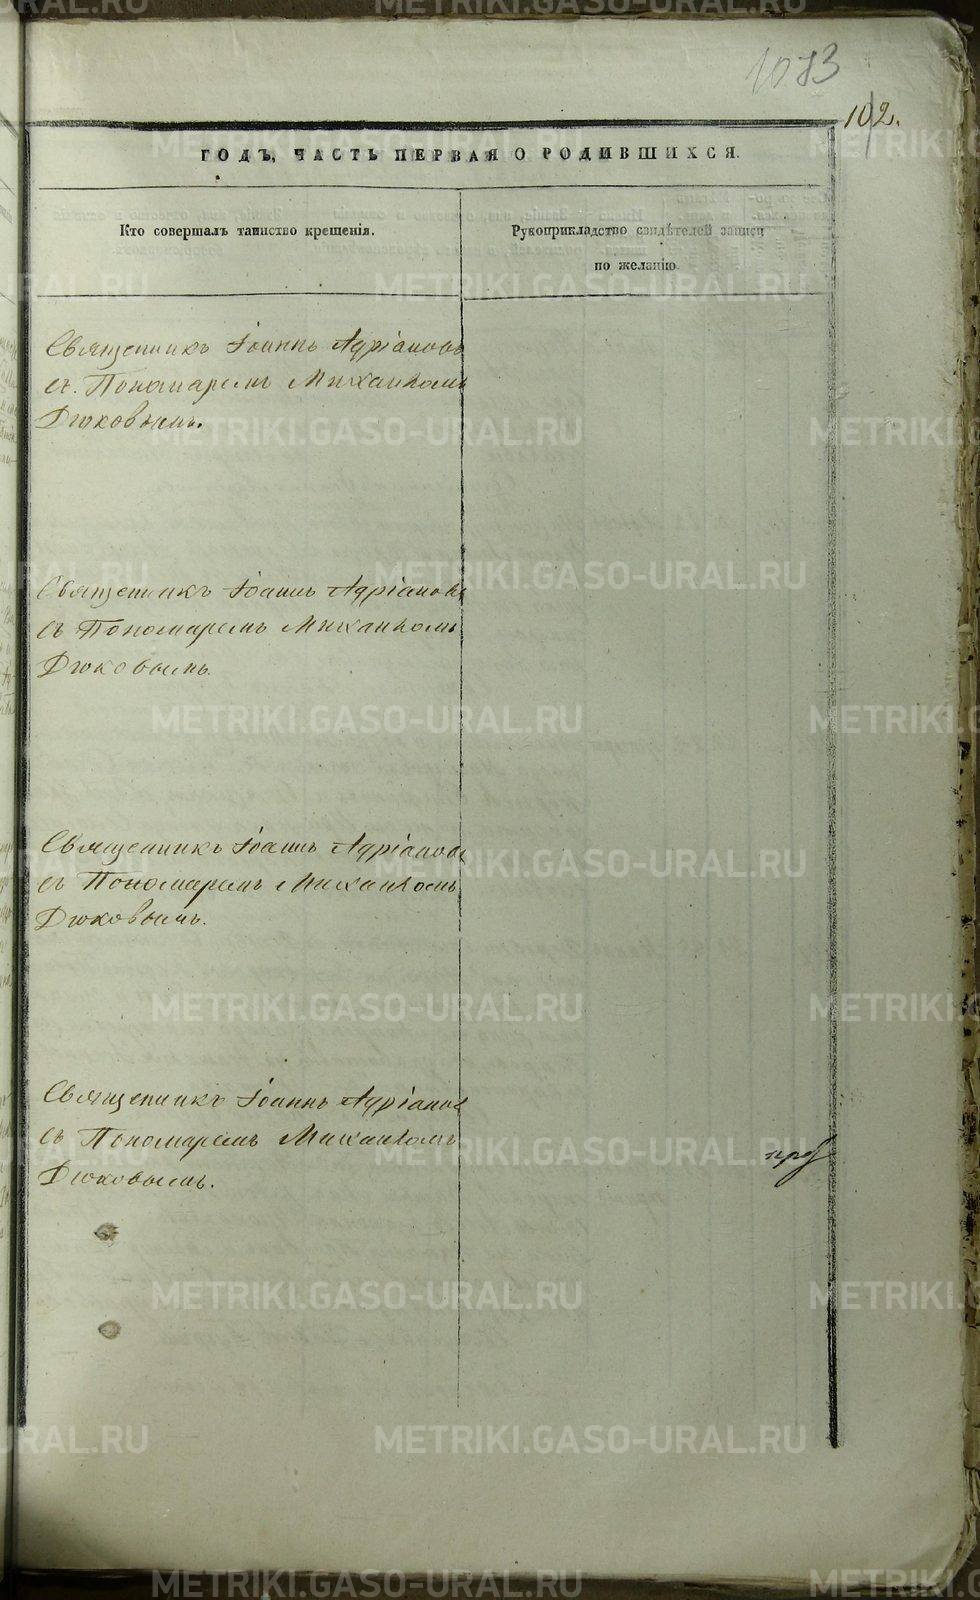 1073
102.
ГОДЪ, ЧАСТЬ ПЕРВАЯ О РОДИВШИХСЯ.
Кто совершалъ таинство крещенія.
Рукоприкладство свидѣтелей записи
по желанію.
Священникъ Іоаннъ Адріановъ
съ Пономаремъ Михаиломъ
Дюковымъ.
Священникъ Іоаннъ Адріановъ
съ Пономаремъ Михаиломъ
Дюковымъ.
Священникъ Іоаннъ Адріановъ
съ Пономаремъ Михаиломъ
Дюковымъ.
Священникъ Іоаннъ Адріановъ
съ Пономаремъ Михаиломъ
Дюковымъ.
METRIKI.GASO-URAL.RU